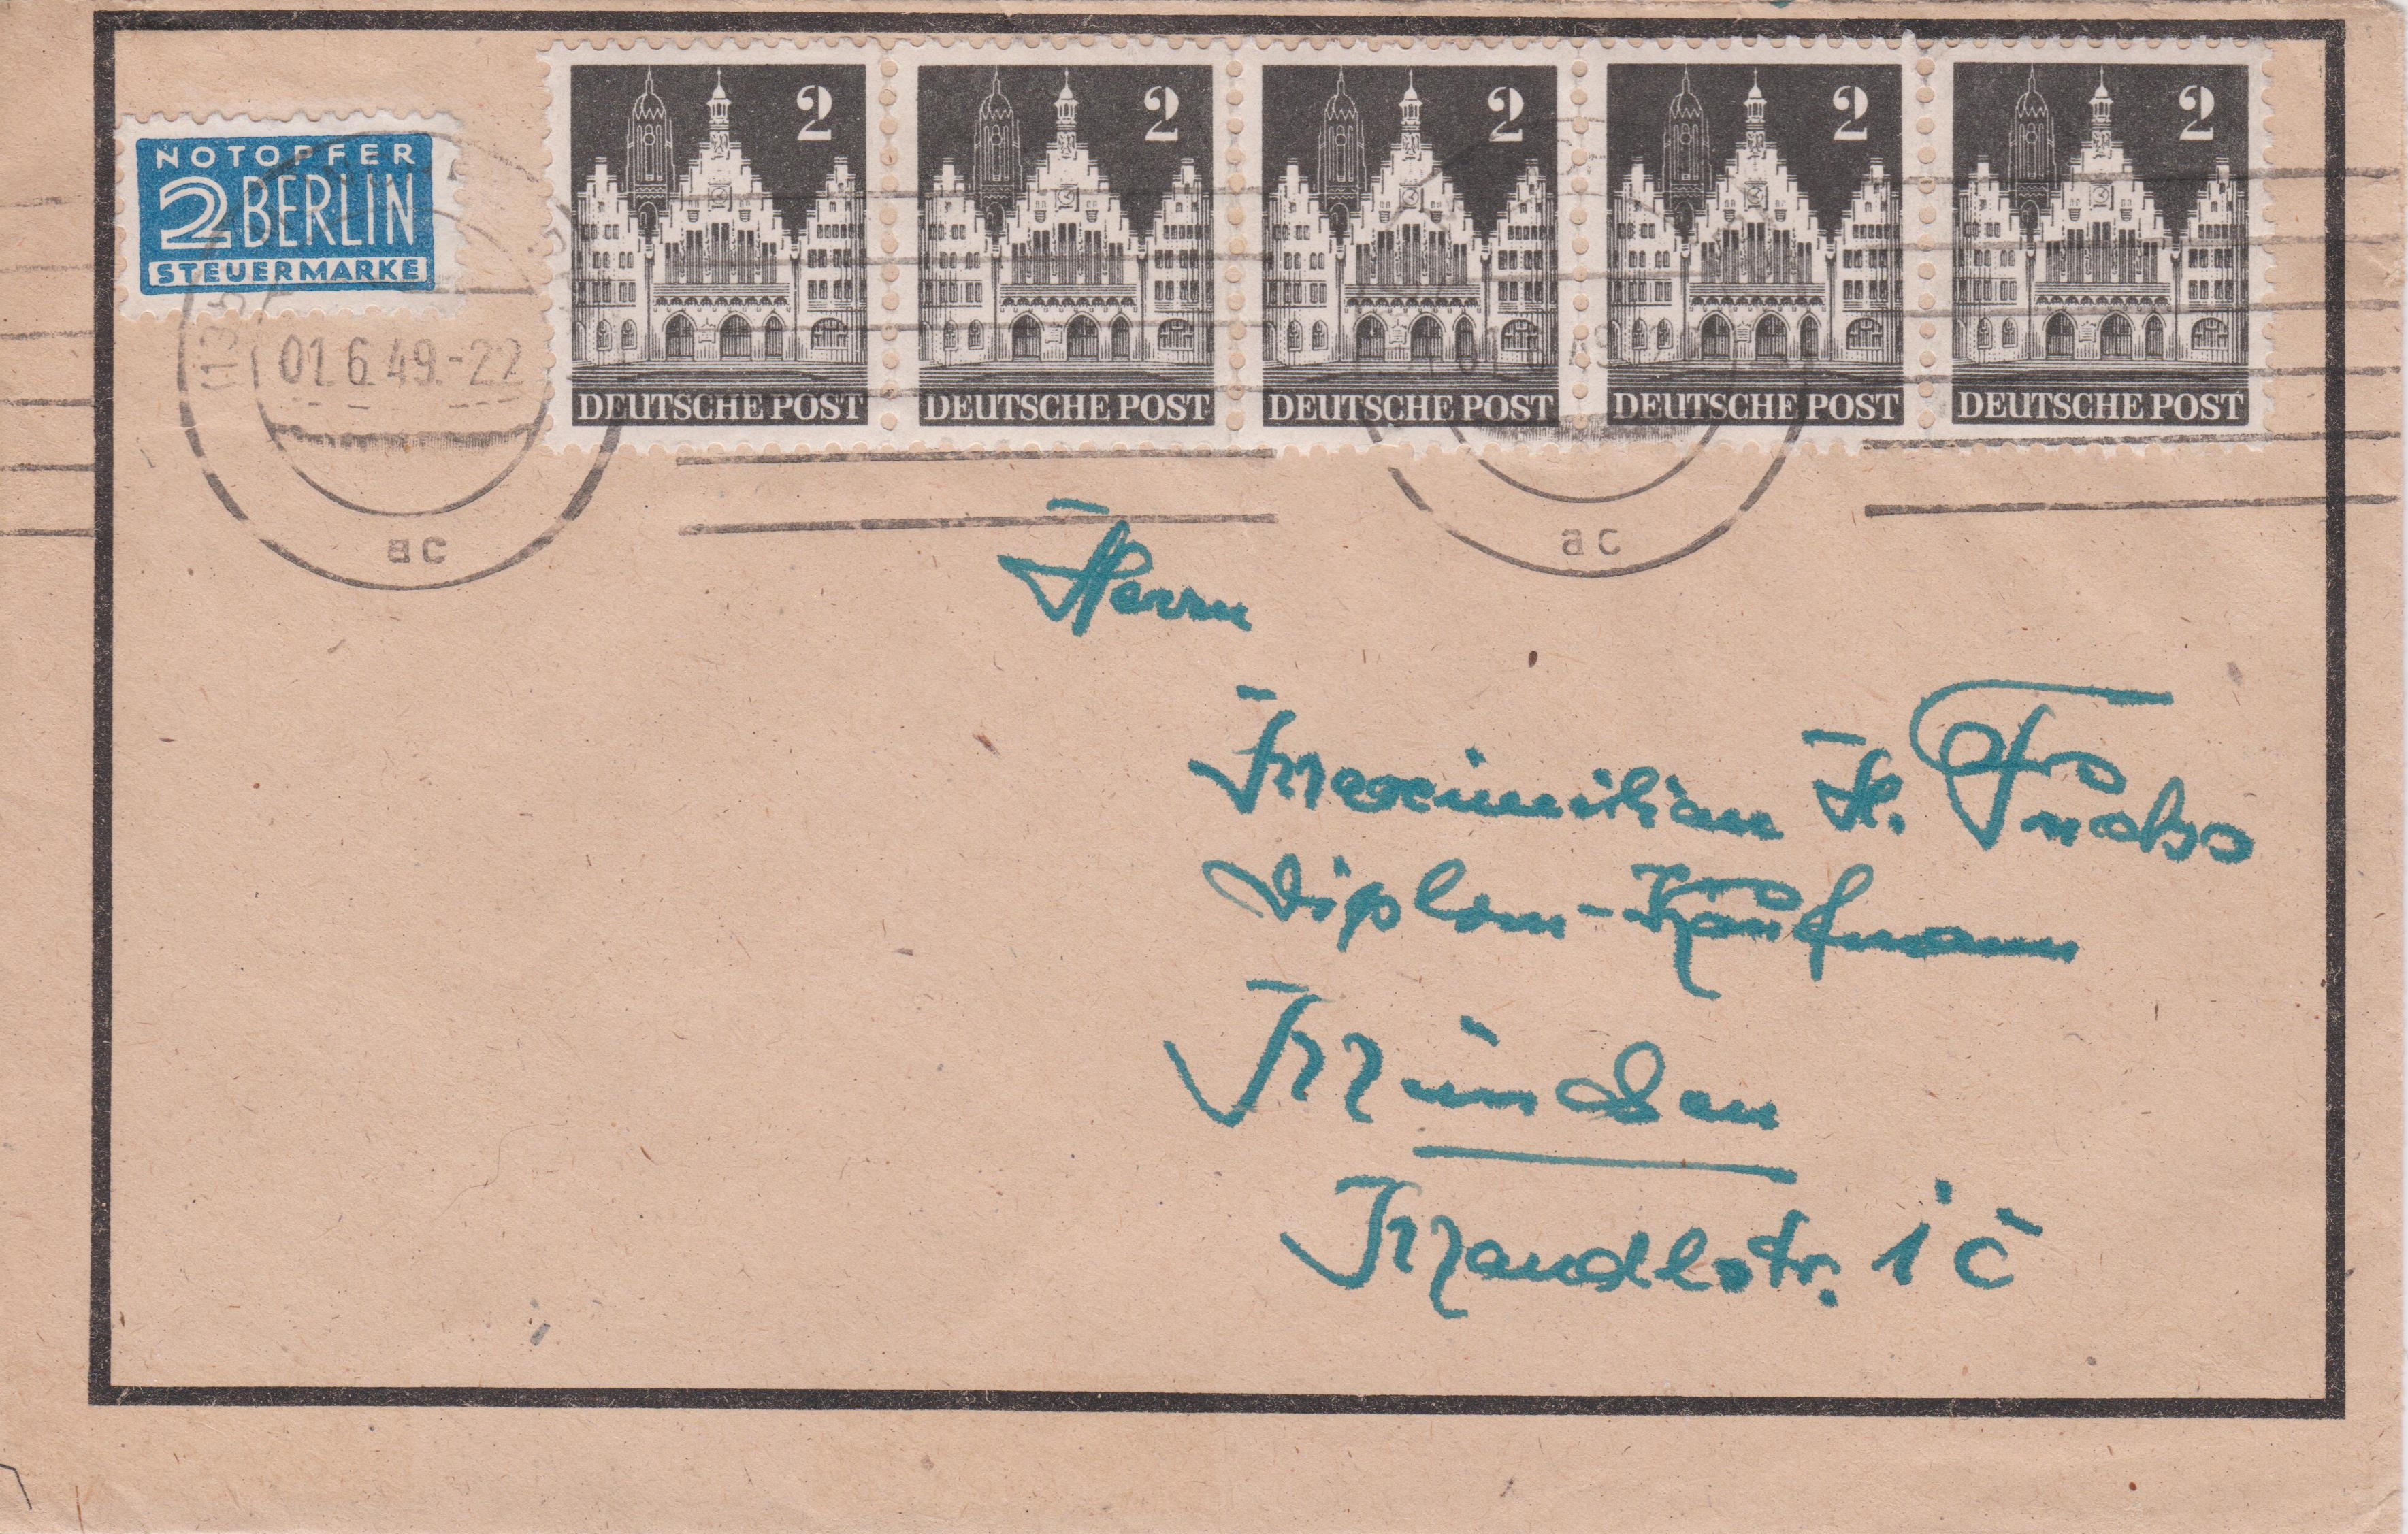 NOTOPFER
2 BERLIN
STEUERMARKE
2
DEUTSCHE POST
2
DEUTSCHE POST
2
DEUTSCHE POST
2
DEUTSCHE POST
2
DEUTSCHE POST
01.6.49.-22
ac
ac
Herrn
Maximilian H.
Diplom-Kaufmann
München
Mandlstr. 1 c